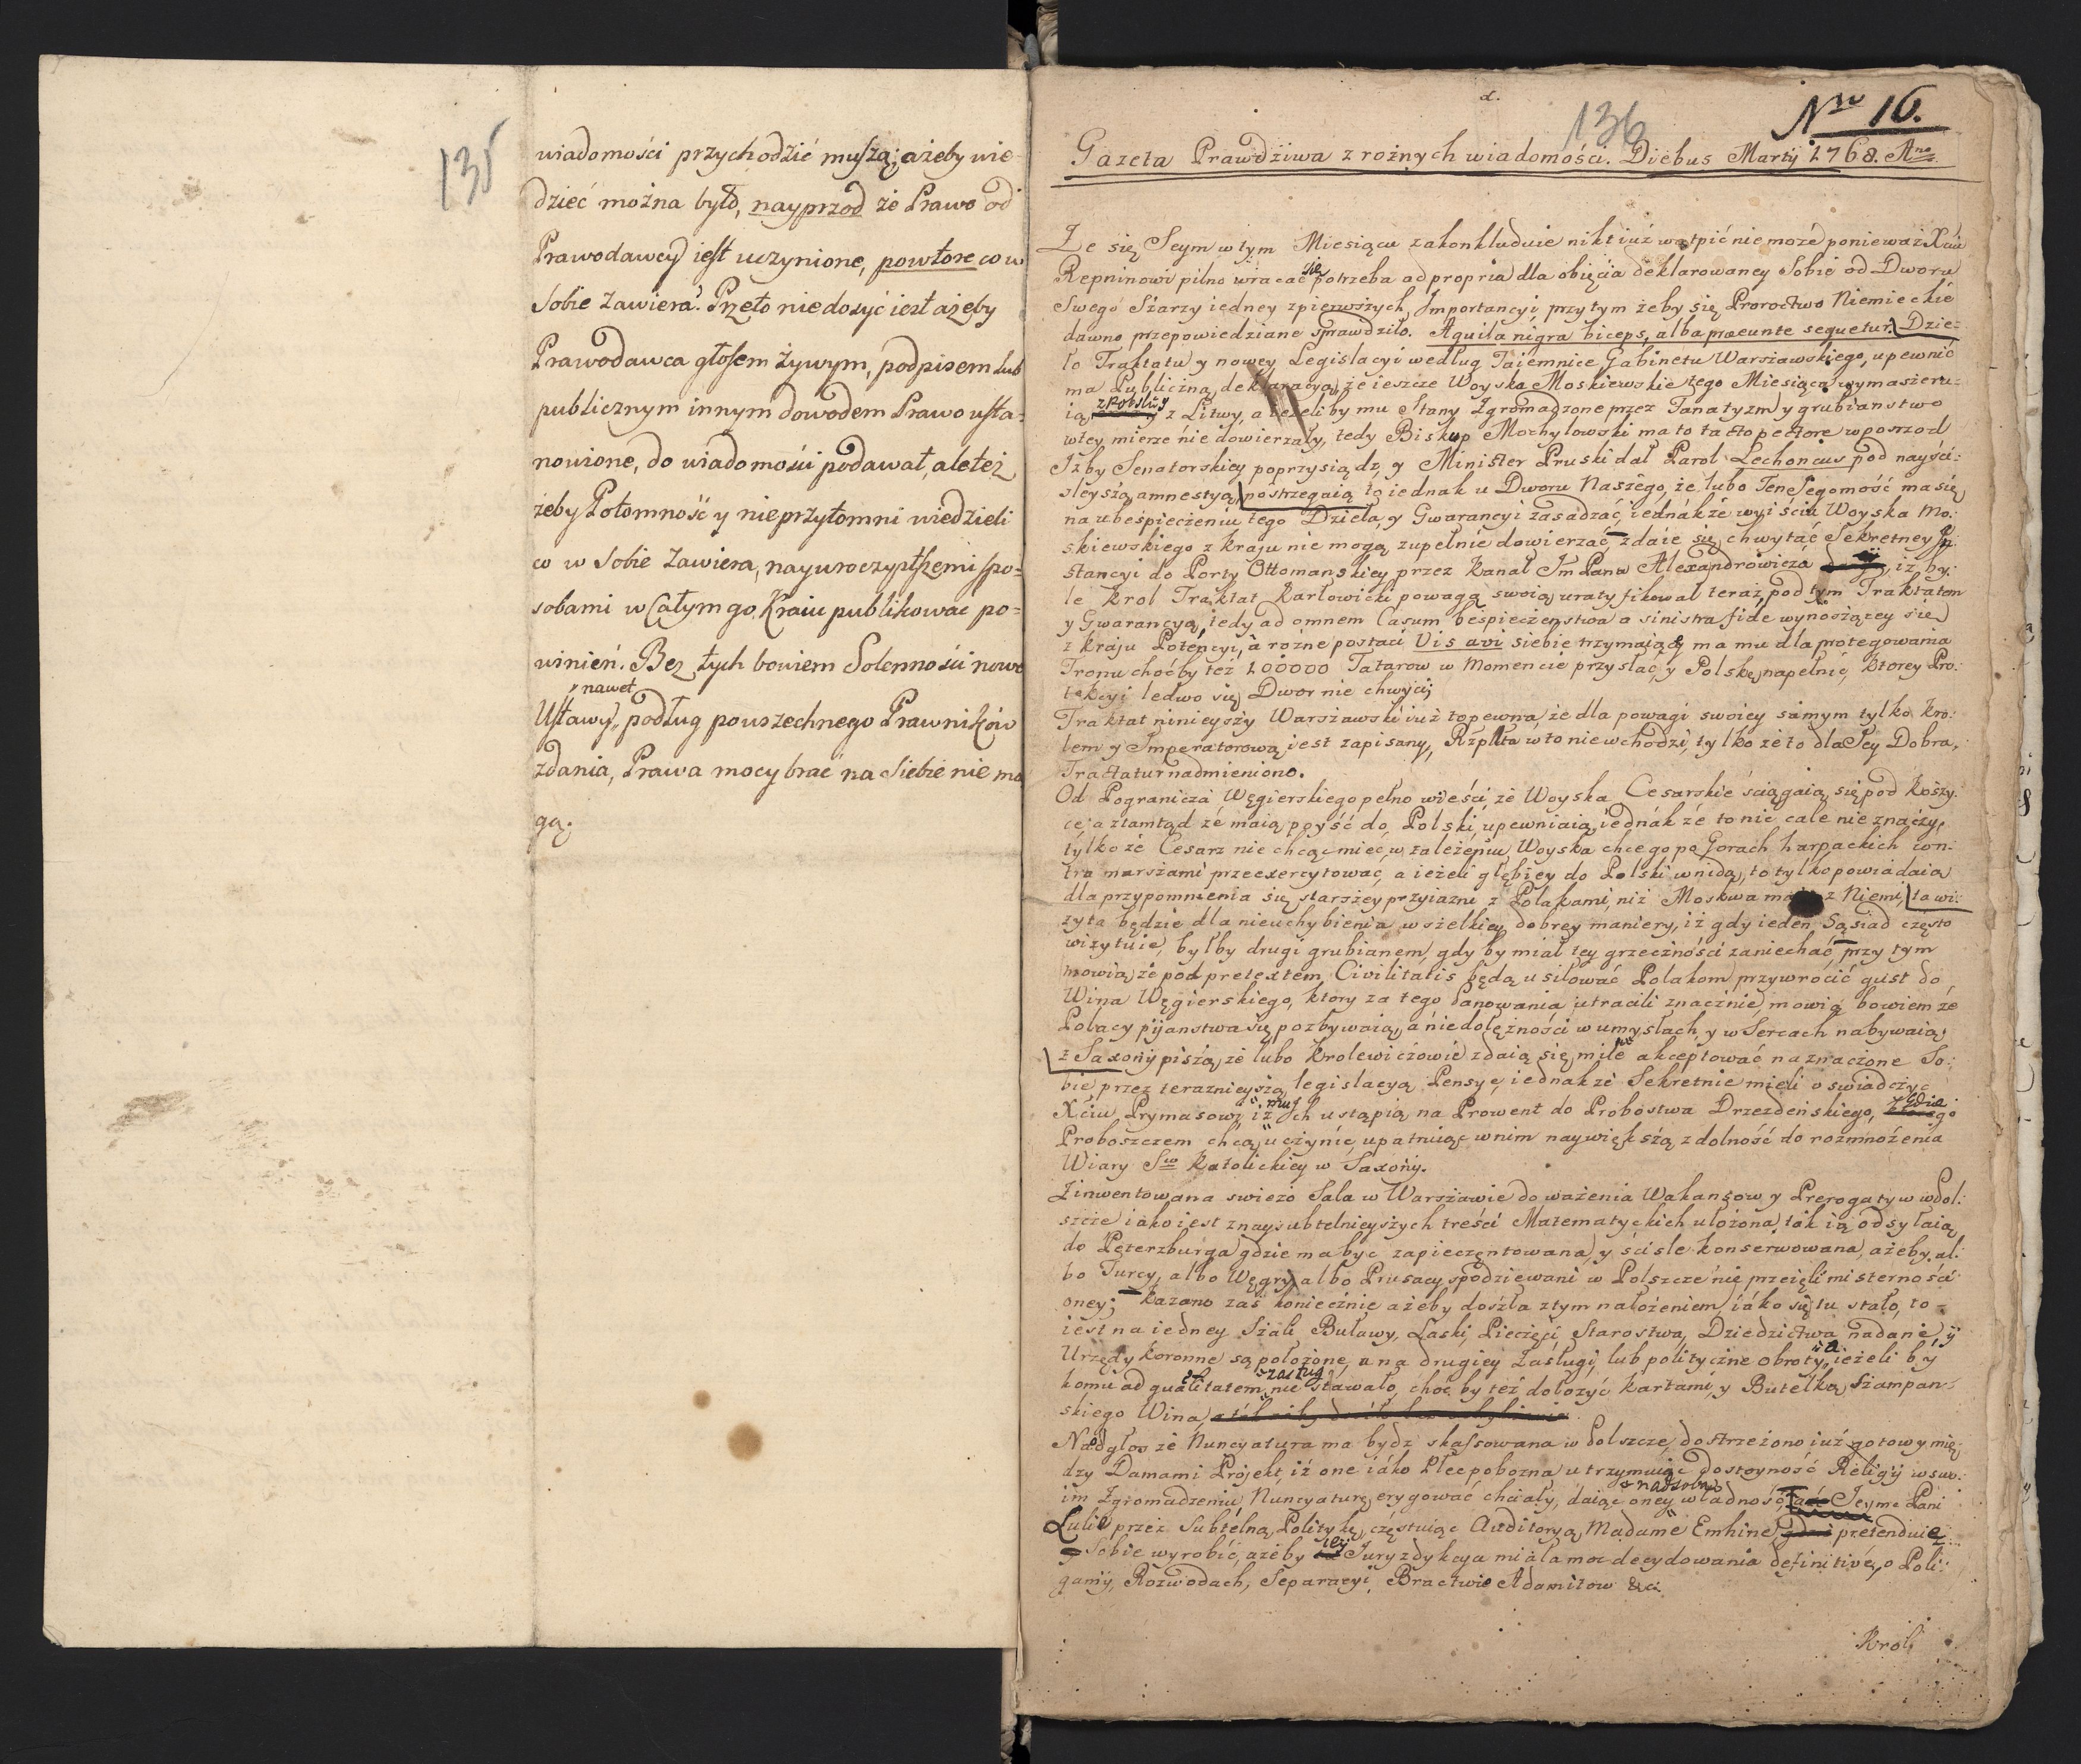 135
wiadomości przychodzić muszą; ażeby wie-
dzieć można było, nayprzod że Prawo od
Prawodawcy iest uczynione, powtore co w
sobie zawiera? Przeto niedosyć iest ażeby
Prawodawca głosem żywym, podpisem lub
publicznym innym dowodem Prawo usta=
nowione, do wiadomości podawał, ale też
żeby Potomność y nieprzytomni wiedzieli
co w sobie zawiera, nayuroczystszemi spo=
sobami w Całym go Kraiu publikować po=
winień. Bez tych bowiem Solenności nowe
nawet
Ustawy, podług powszechnego Prawników
zdania, Prawa mocy brać na Siebie nie mo
gą.
d.
136
Nro 16.
Gazeta Prawdziwa z rożnych wiadomości. Diebus Martij 1768. Ano
Ze się Seym w tym Miesiącu zakonkluduie nikt iuż wątpić nie może ponieważ Xciu
Repninowi pilno wracać się potrzeba ad propria dla obięcia deklarowaney Sobie od Dworu
Swego Szarży iedney z pierwszych Importancyi przy tym żeby się Proroctwo Niemieckie
dawno przepowiedziane sprawdziło. Aquila nigra biceps, alba præeunte sequetur. Dzie-
ło Traktatu y nowey Legislacyi według Taiemnice Gabinetu Warszawskiego, upewnić
ma Publiczną deklaracyą, że ieszcze Woyska Moskiewskie tego Miesiąca wymaszeru-
ią z Polski y z Litwy, a ieżeliby mu Stany Zgromadzone przez Fanatyzm y grubianstwo
w tey mierze nie dowierzały, tedy Biskup Mochylowski ma to tacto pectore w posrzod
Izby Senatorskiey poprzysiądz, y Minister Pruski dał Parol Lechoncus pod nayści-
sleyszą amnestyą, postrzegaią to iednak u Dworu Naszego, że lubo Ten Jegomość ma się
na ubespieczeniu tego Dzieła, y Gwarancyi zasadzać, iednakże wyiściu Woyska Mo-
skiewskiego z kraju nie mogą zupełnie dowierzać, zdaie się chwytać Sekretney In-
stancyi do Porty Ottomanskiey przez kanał Jm Pana Alexandrowicza, iż by-
le Krol Traktat Karłowicki powagą swoią uratyfikował teraz, pod tym Traktatem
y Gwarancyą, tedy ad omnem Casum bespieczenstwa a sinistra fide wynoszącey się
z kraju Potencyi, a rożne postaci Vis avi siebie trzymaiącey ma mu dla protegowania
Tronu choćby też 100000 Tatarow w Momencie przysłać, y Polskę napełnić, ktorey Pro-
tekcyi ledwo się Dwor nie chwyci;
Traktat ninieyszy Warszawski iuż to pewna, że dla powagi swoiey samym tylko Kro-
lem y Imperatorową iest zapisany, Rzplta w to nie wchodzi, tylko że to dla Jey Dobra,
Tractatur nadmieniono.
Od Pogranicza Węgierskiego pełno wieści, że Woyska Cesarskie ściągaią się pod Koszy-
ce, a ztamtąd że maią poyść do Polski, upewniaią iednak że to nic cale nie znaczy,
tylko że Cesarz nie chcąc mieć w zależeniu Woyska chce go po Gorach harpackich con-
tra marszami przeexercytować, a ieżeli głębiey do Polski wnidą, to tylko powiadaią
dla przypomnienia się starszey przyiazni z Polakami, niż Moskwa ma z Niemi, ta wi-
zyta będzie dla nieuchybienia wszelkiey dobrey maniery, iż gdy ieden Sąsiad często
wizytuie, byłby drugi grubianem, gdyby miał tey grzeczności zaniechać, przy tym
mowią, że pod pretextem Civilitatis będą usiłować Polakom przywrócić gust do
Wina Węgierskiego, ktory za tego Panowania utracili znacznie, mowią bowiem że
Polacy pijanstwa się pozbywaią, a niedołężności w umysłach y w Sercach nabywaią.
z Saxonij piszą, że lubo Krolewiczowie zdaią się mile akceptować naznaczone So-
bie przez terazniejszą legislacyą Pensye, iednakże Sekretnie mieli oswiadczyć
Xciu Prymasowi, iż mu Ich ustąpią na Prowent do Probostwa Drezdeńskiego, gdzie go
Proboszczem chcą uczynić, upatruiąc w nim naywiększą zdolność do rozmnożenia
Wiary Stey Katolickiey w Saxonij.
Zinwentowana swieżo Sala w Warszawie do ważenia Wakansow y Prerogatyw w Pol-
szcze iako iest z naysubtelnieyszych treści Matematyckich ułożona, tak ią odsyłaią
do Peterzburga gdzie ma byc zapieczętowana, y ściśle konserwowana, ażeby al-
bo Turcy, albo Węgry, albo Prusacy spodziewani w Polszcze nie przeięli misterności
oney; kazano zaś koniecznie ażeby doszła z tym nałożeniem iako się tu stało, to
iest na iedney Szali Buławy, Laski, Pieczęci, Starostwa, Dziedzictwa nadane, y
Urzędy koronne są położone, a na drugiey Zasługi, lub polityczne obroty, a ieżeli by
komu ad qualitatem zasług nie stawało, choćby też dołożyć kartami, y Butelką Szampan-
skiego Wina
Na odgłos że Nuncyatura ma bydz skassowana w Polszcze, dostrzeżono iuż gotowy mię-
dzy Damami Projekt, iż one iako Płeć pobożna utrzymuiąc dostoyność Religij w swo-
im Zgromadzeniu Nuncyaturę erygować chciały, daiąc oney władność, Jeyme Pani
Lulie przez Subtelną Politykę, częstuiąc Auditoryą Madame Emhine, pretenduie
Sobie wyrobić, ażeby iey Juryzdykcya miała moc decydowania definitive, o Poli-
gamij, Rozwodach, Separacyi, Bractwie Adamitow &c.
Krol